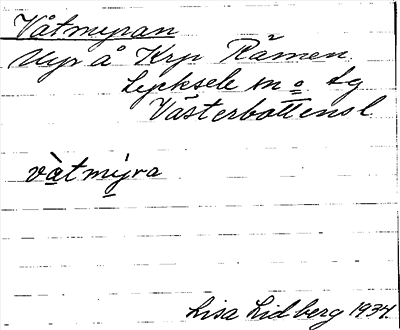 Våtmyran
Myr å Krp Råmen
Lycksele m o lg
Västerbottens l
våtmyra
Lisa Lidberg 1934.